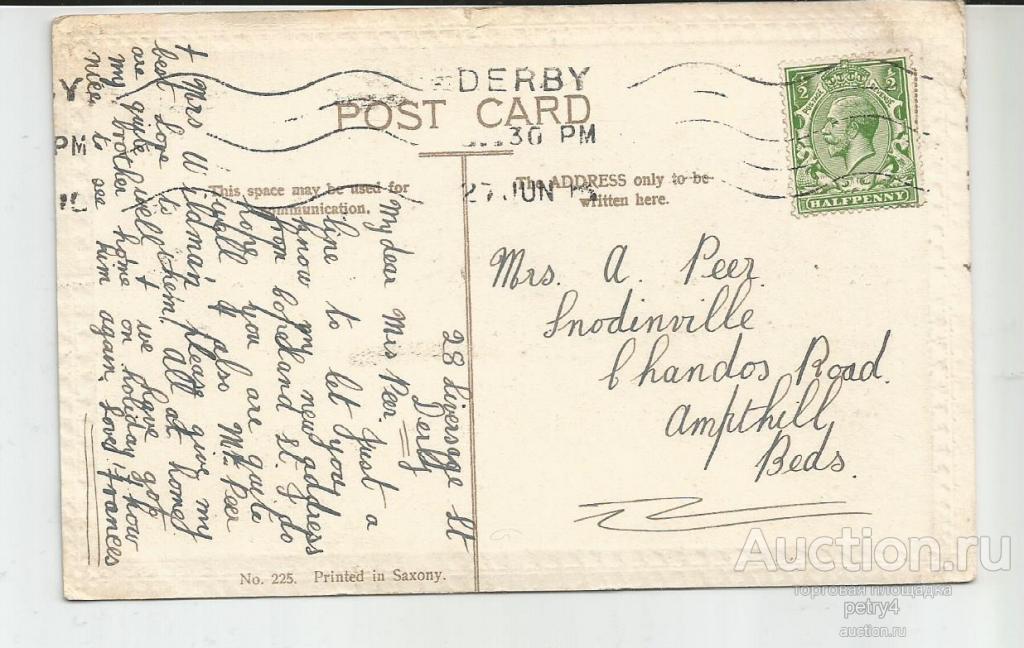 DERBY
POST CARD
30 PM
27 JUN
Y
PM
This space may be used for
communication.
The ADDRESS only to be
written here.
½ ½
HALFPENNY
28 Liversage St
Derby
My dear Mis Peer. Just a
line to let you
know my new address
from Copeland St. I do
hope you are quite
well & also Mr Peer
+ Mrs Wildman, please give my
best Love to them. All at home
are quite well & we have got
my brother home on holiday & how
nice to see him again. Love, Frances
Mrs. A. Peer
Snodinville
Chandos Road.
Ampthill
Beds.
No. 225. Printed in Saxony.
Auction.ru
торговая площадка
petry4
auction.ru